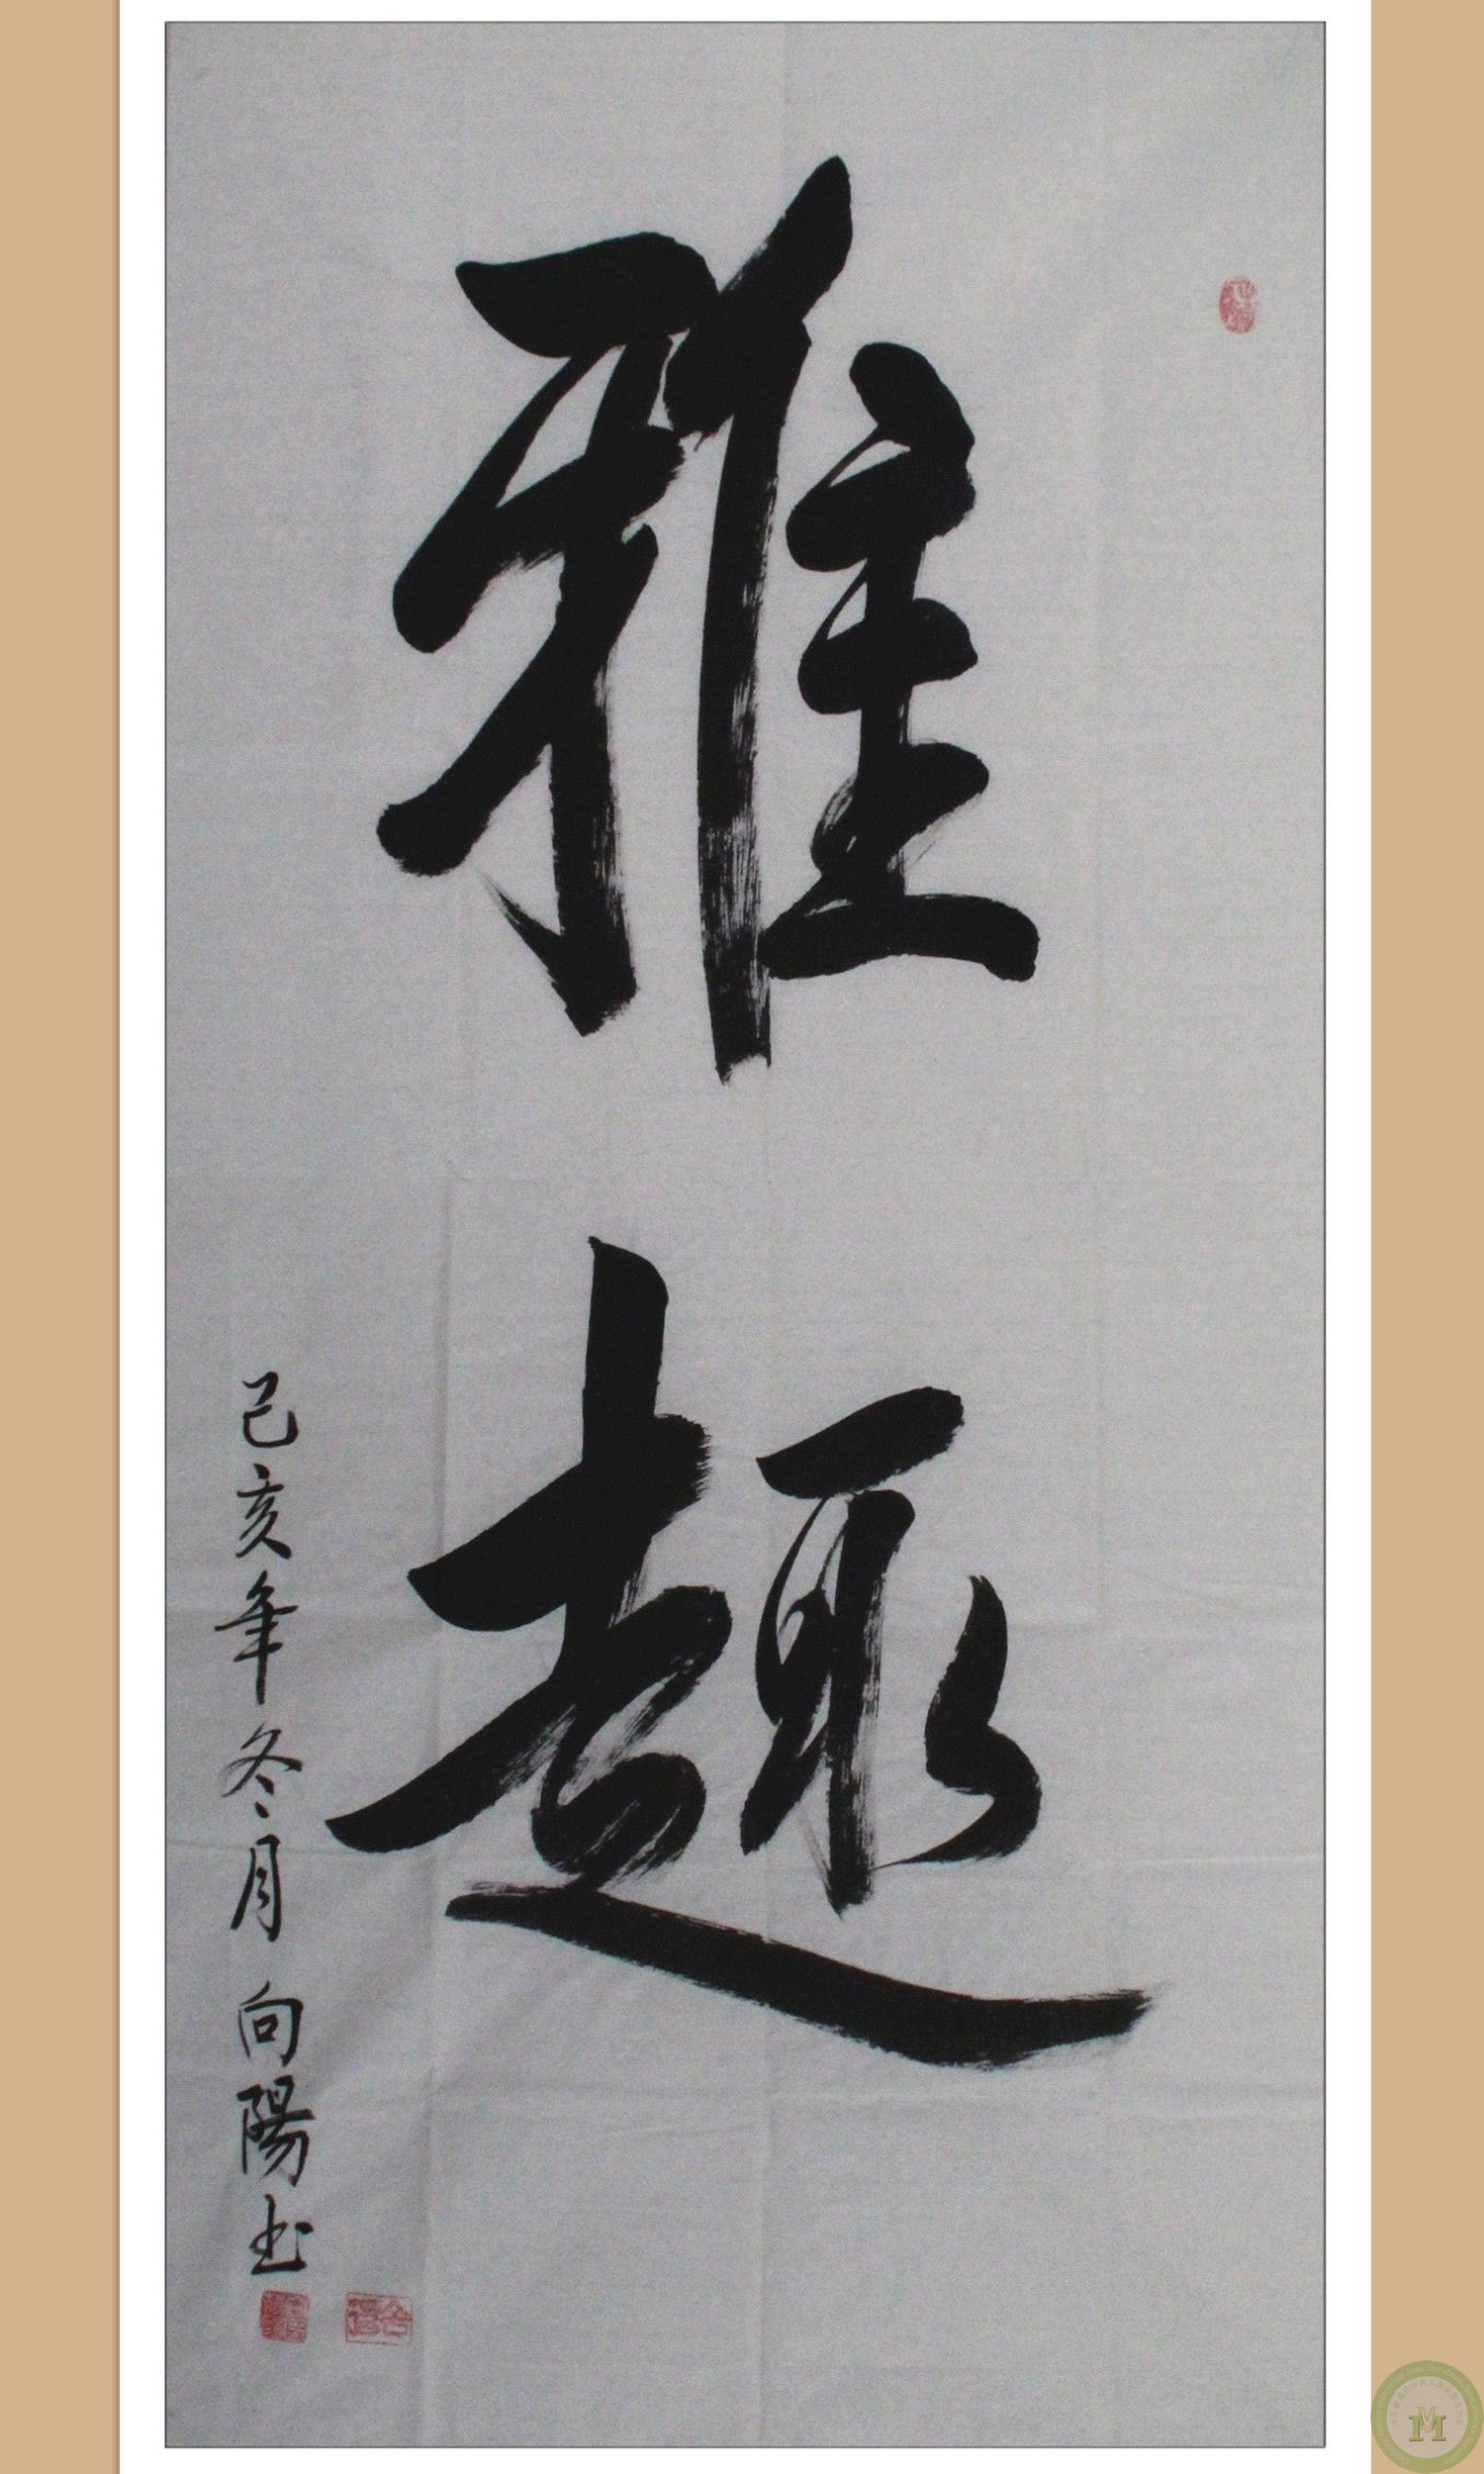 雅趣
己亥年冬月 向陽书